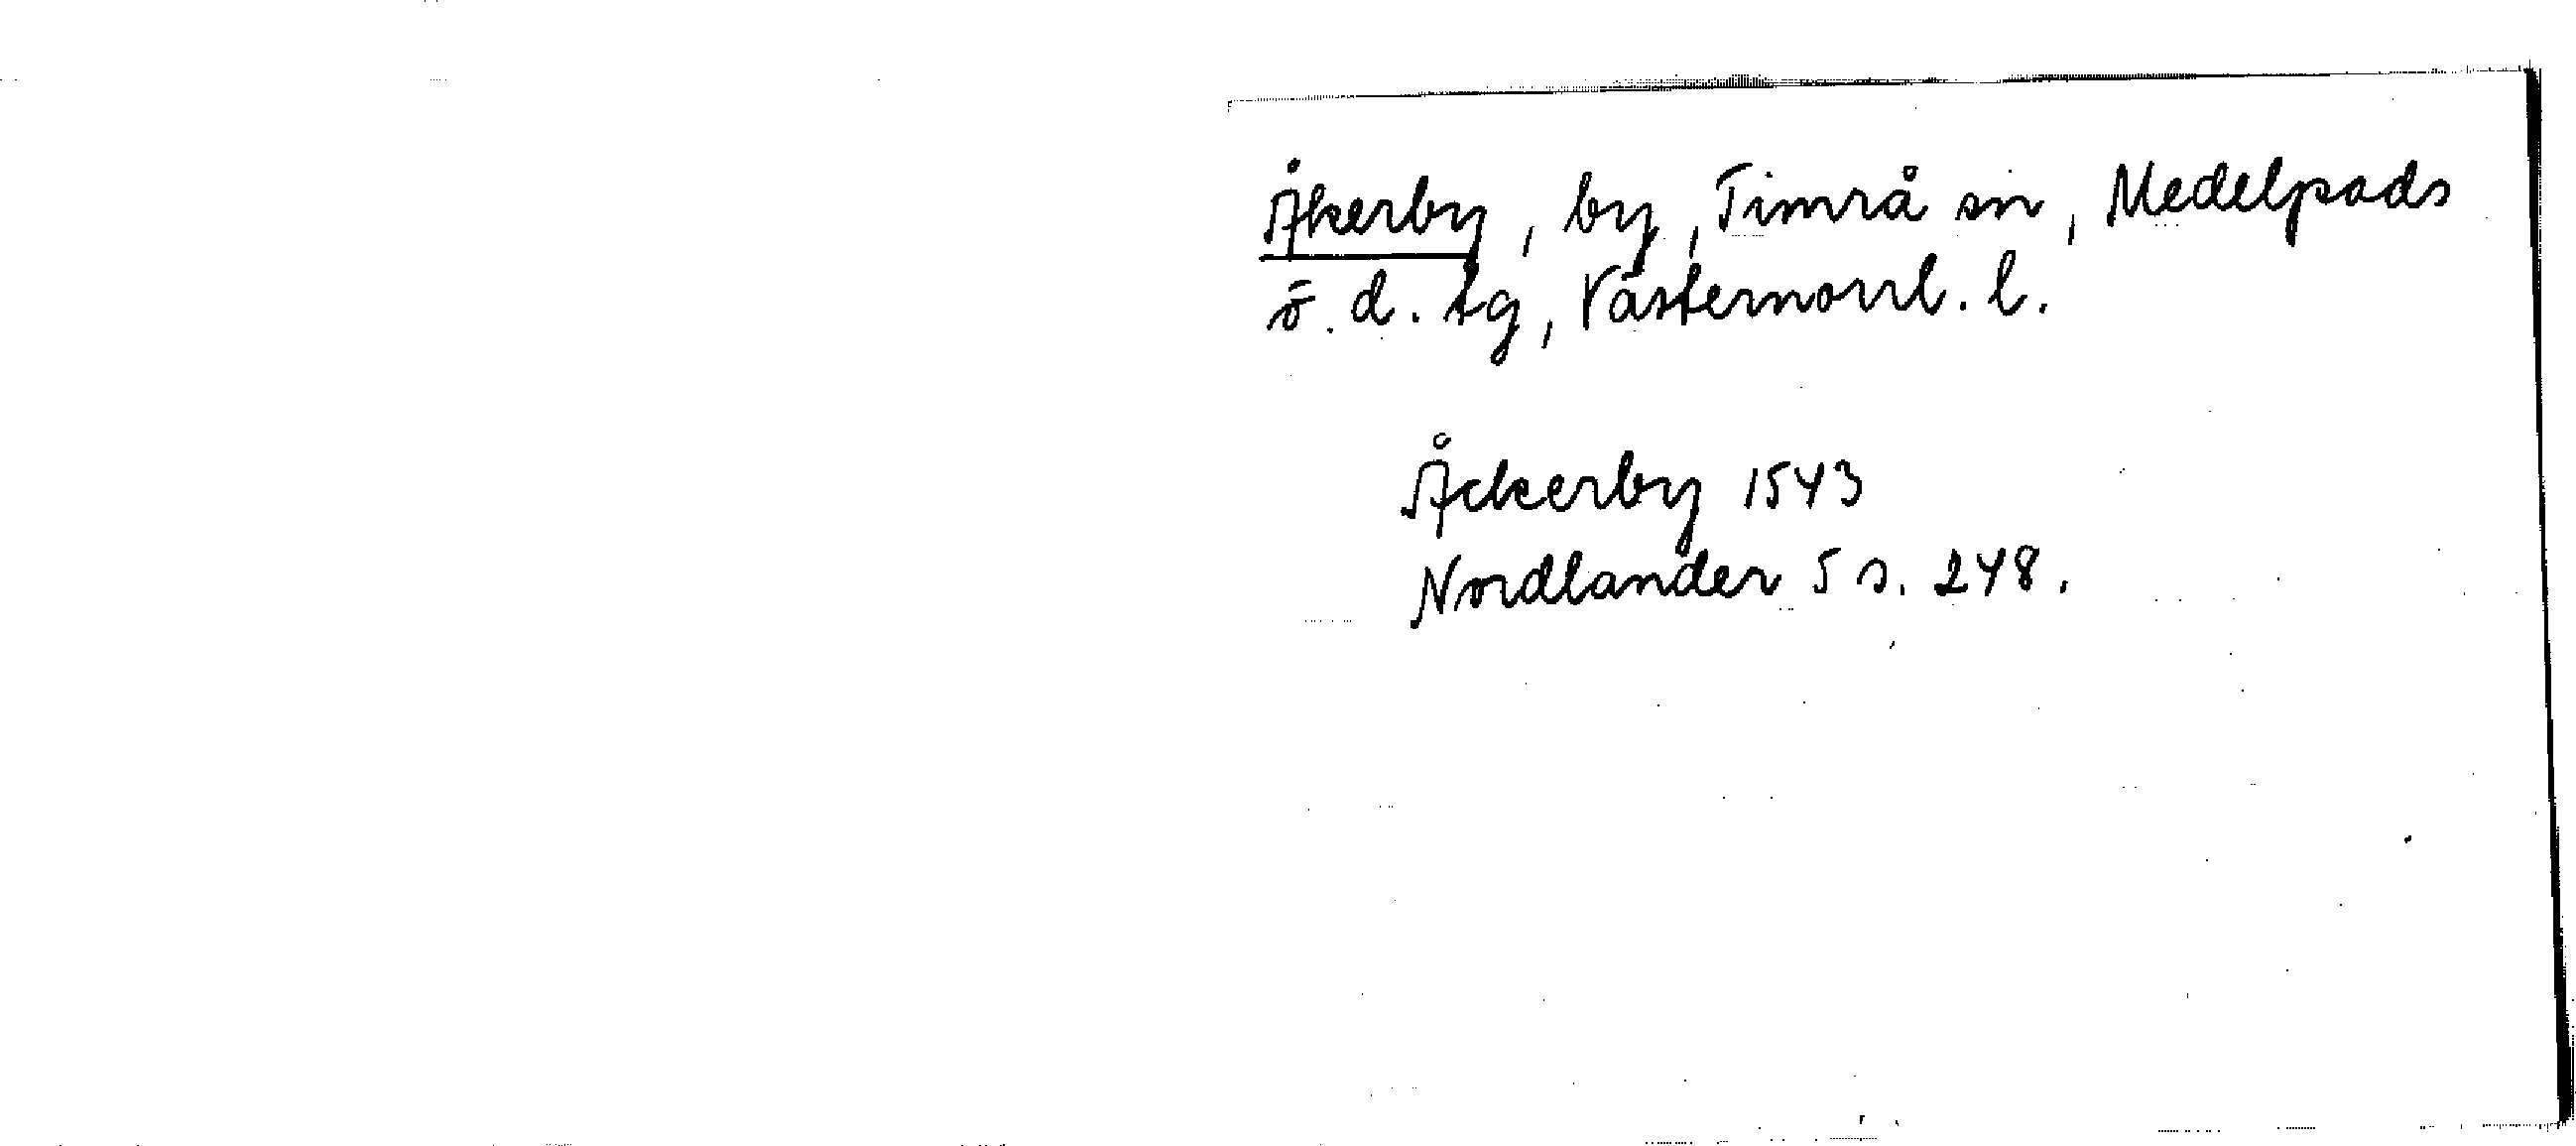 Åkerby, by, Timrå sn, Medelpads
ö. d. tg, Västernorrl. l.
Åckerby 1543
Nordlander 5 s. 248.